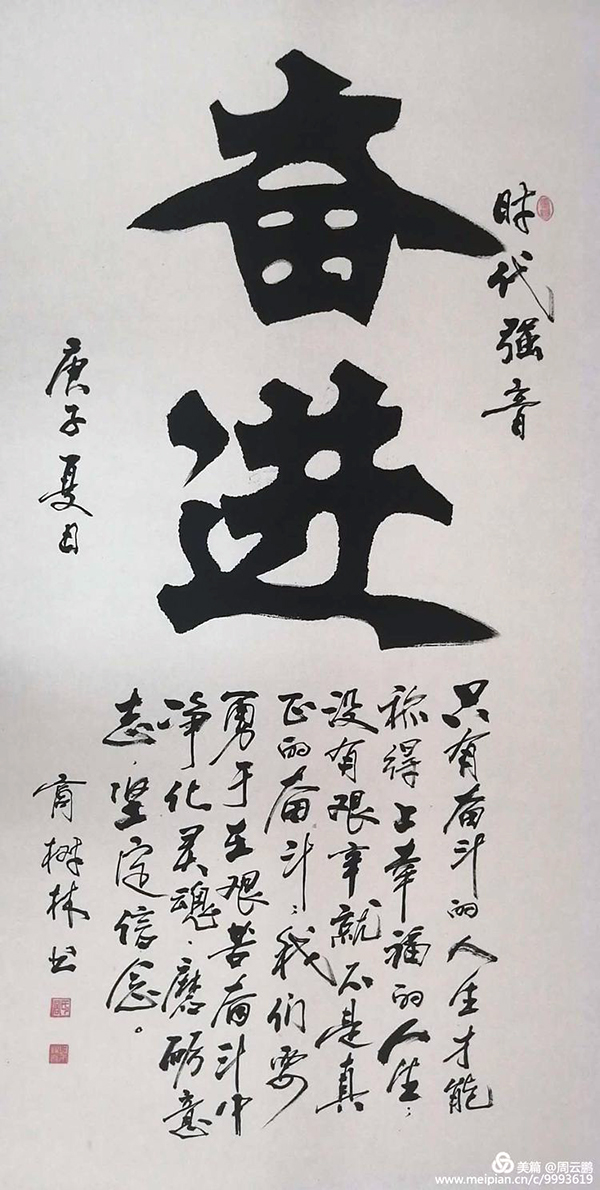 时代强音
奋进
只有奋斗的人生才能
称得上幸福的人生；
没有艰辛就不是真
正的奋斗；我们要
勇于在艰苦奋斗中
净化灵魂、磨砺意
志、坚定信念。
庚子夏月
树林书
美篇 @周云鹏
www.meipian.cn/c/9993619